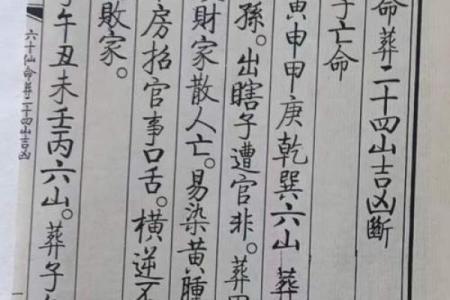 命葬二十四山吉凶斷
子亡命
寅申甲庚乾巽六山葬
孫。出瞎子遭官非。葬
財家散人亡。易染黃腫
房招官事口舌。橫逆不
敗家。
子午丑未壬丙六山。葬子
六十仙命葬二十四山吉凶
一